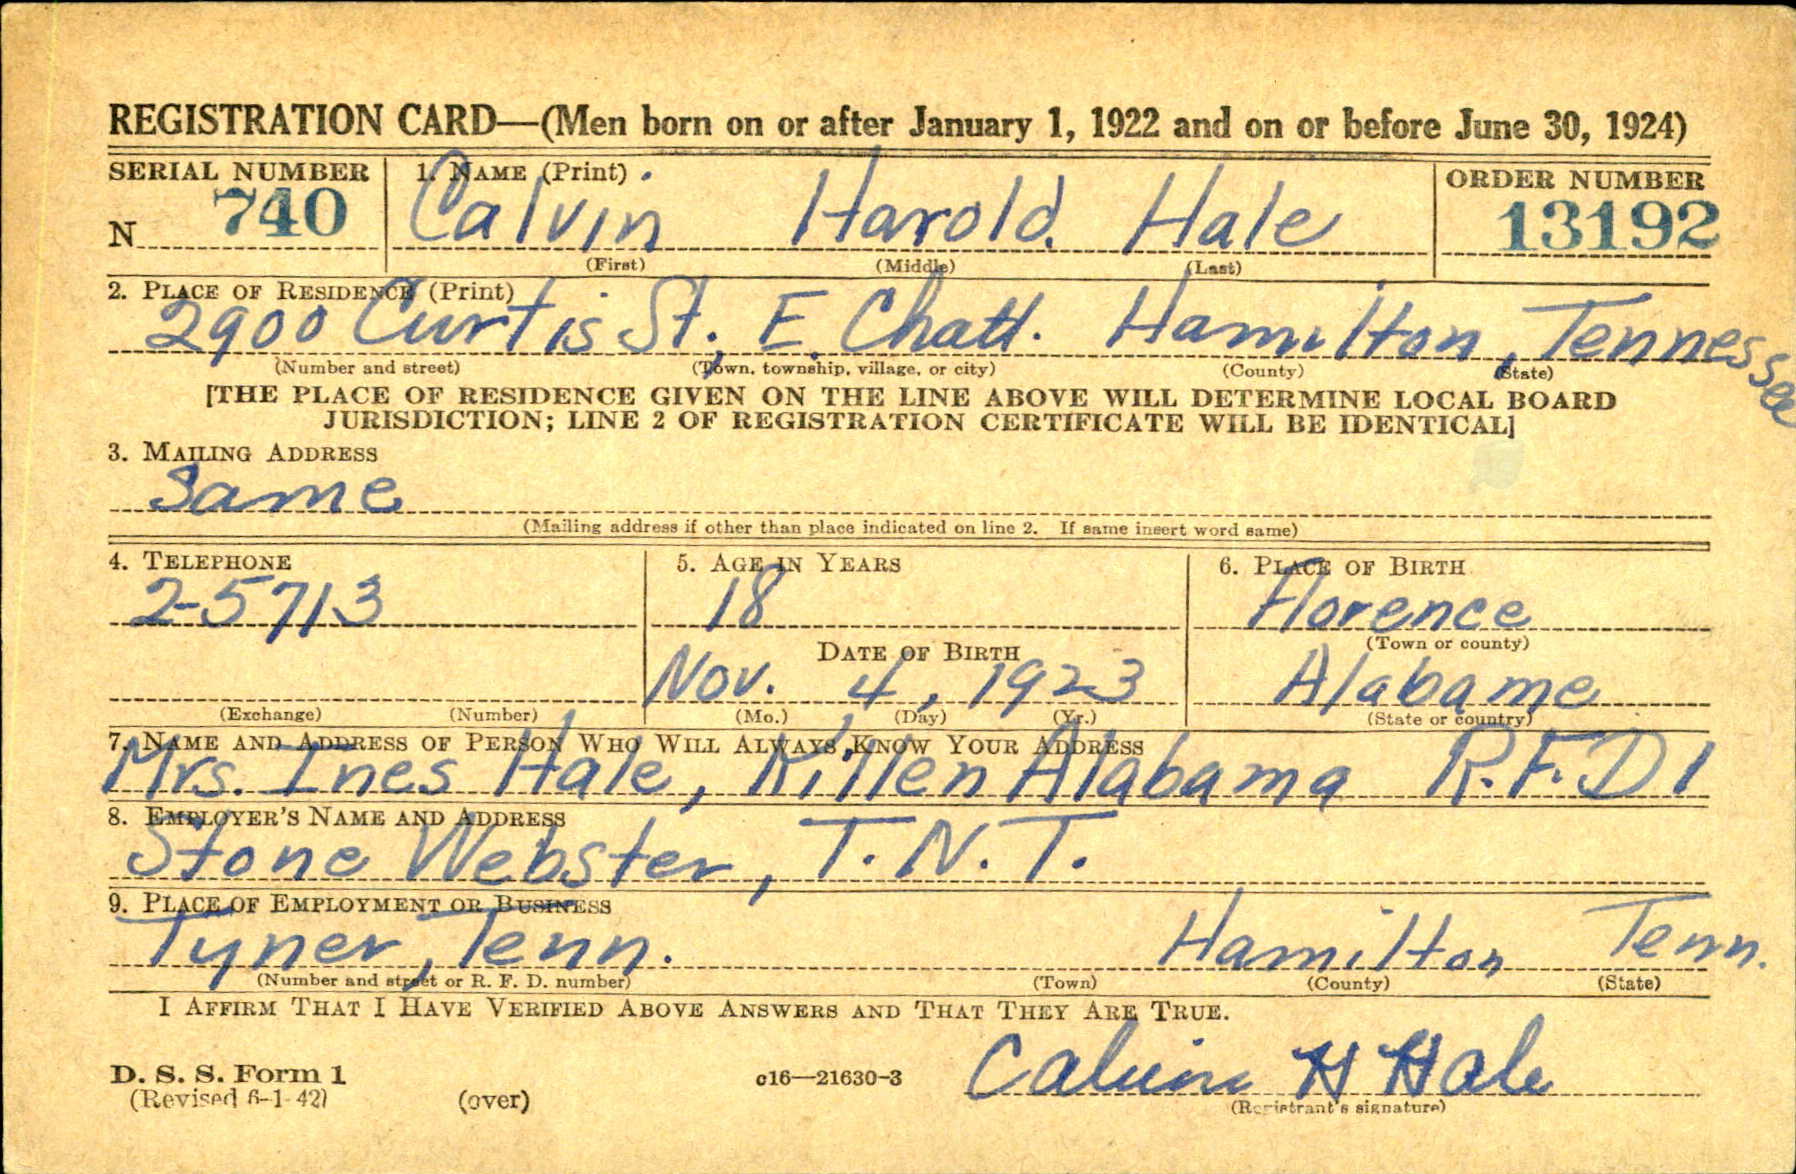 REGISTRATION CARD—(Men born on or after January 1, 1922 and on or before June 30, 1924)
SERIAL NUMBER 1. NAME (Print) ORDER NUMBER
N 740 Calvin Harold Hale 13192
(First) (Middle) (Last)
2. PLACE OF RESIDENCE (Print)
2900 Curtis St., E. Chatt. Hamilton, Tennessee
(Number and street) (Town, township, village, or city) (County) (State)
[THE PLACE OF RESIDENCE GIVEN ON THE LINE ABOVE WILL DETERMINE LOCAL BOARD
JURISDICTION; LINE 2 OF REGISTRATION CERTIFICATE WILL BE IDENTICAL]
3. MAILING ADDRESS
Same
(Mailing address if other than place indicated on line 2. If same insert word same)
4. TELEPHONE 5. AGE IN YEARS 6. PLACE OF BIRTH
2-5713 18 Florence
DATE OF BIRTH (Town or county)
Nov. 4, 1923 Alabame
(Exchange) (Number) (Mo.) (Day) (Yr.) (State or country)
7. NAME AND ADDRESS OF PERSON WHO WILL ALWAYS KNOW YOUR ADDRESS
Mrs. Ines Hale, Killen Alabama R.F.D 1
8. EMPLOYER'S NAME AND ADDRESS
Stone Webster, T.N.T.
9. PLACE OF EMPLOYMENT OR BUSINESS
Tyner, Tenn. Hamilton Tenn.
(Number and street or R. F. D. number) (Town) (County) (State)
I AFFIRM THAT I HAVE VERIFIED ABOVE ANSWERS AND THAT THEY ARE TRUE.
D. S. S. Form 1 c16—21630-3 Calvin H Hale
(Revised 6-1-42) (over) (Registrant's signature)